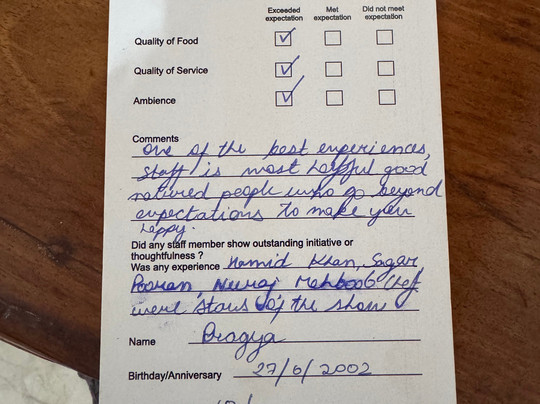 Exceeded expectation Met expectation Did not meet expectation
Quality of Food
Quality of Service
Ambience
Comments
One of the best experiences,
staff is most helpful good
natured people who go beyond
expectations to make you
happy.
Did any staff member show outstanding initiative or
thoughtfulness ?
Was any experience Hamid Khan, Sagar
Pooran, Neeraj Mehboob Chef
were stars of the show
Name Pragya
Birthday/Anniversary 27/6/2002